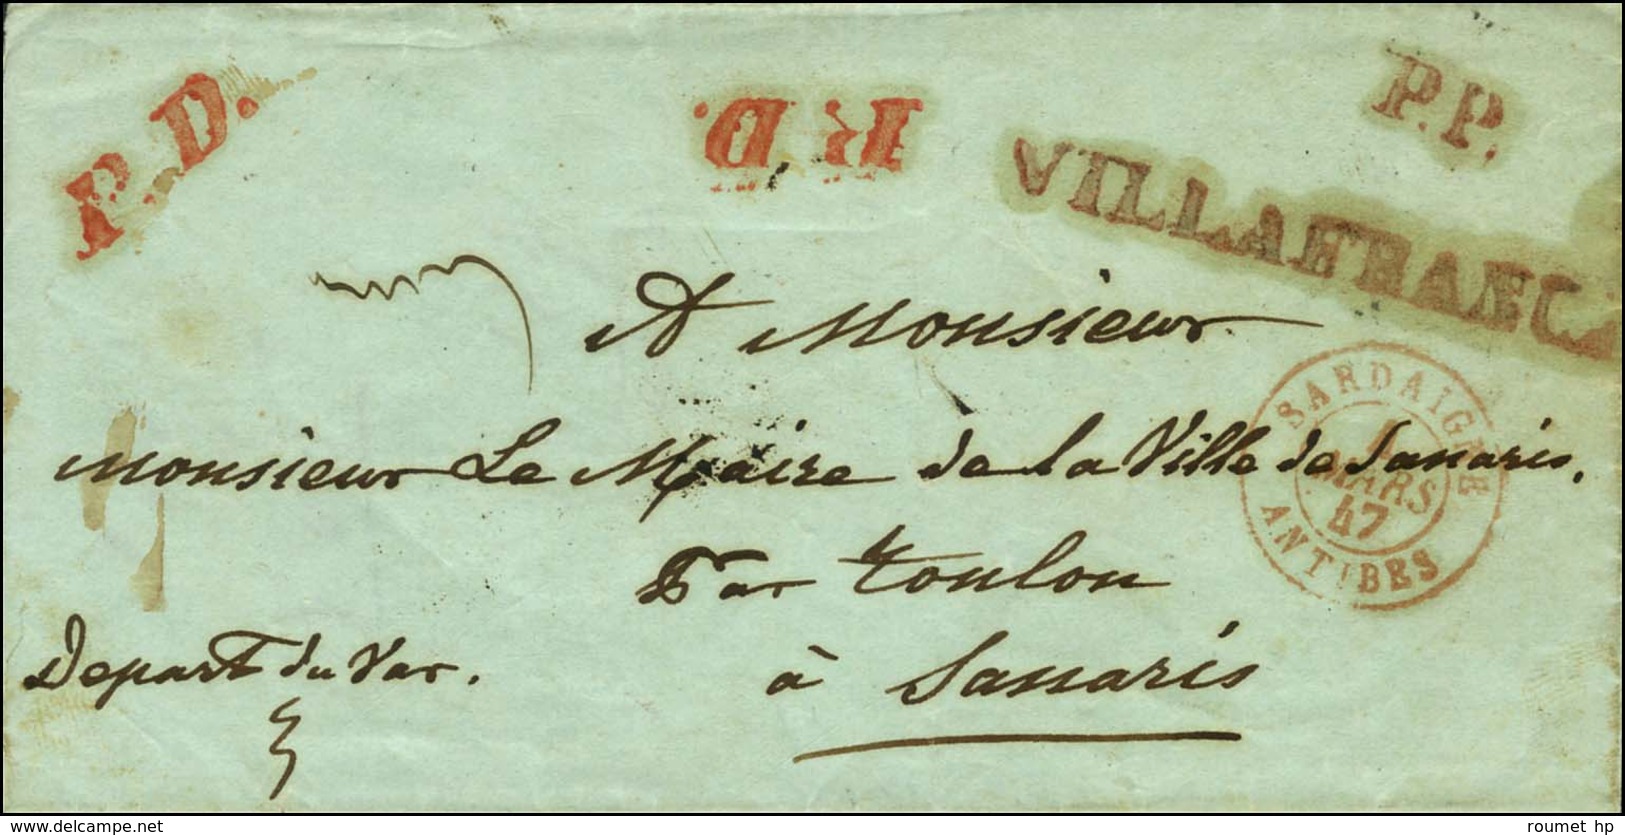 P.D.
P.D.
P.P.
VILLAFRANCA
A Monsieur
Monsieur Le Maire de la Ville de Sanaris.
Par Toulon
à Sanaris
Depart du Var.
SARDAIGNE
1
MARS
47
ANTIBES
delcampe.net
roumet_hp